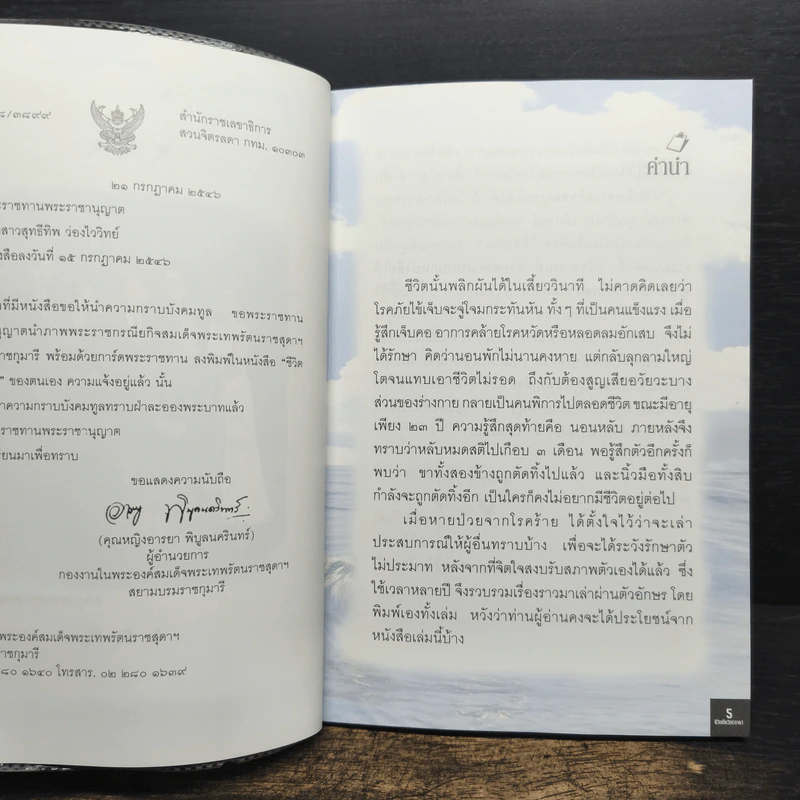 ๘/๓๘๙๙
สำนักราชเลขาธิการ
สวนจิตรลดา กทม. ๑๐๓๐๓
๒๑ กรกฎาคม ๒๕๔๖
ราชทานพระราชานุญาต
สาวสุทธีทิพ ว่องไววิทย์
สือลงวันที่ ๑๕ กรกฎาคม ๒๕๔๖
ที่มีหนังสือขอให้นำความกราบบังคมทูล ขอพระราชทาน
ญาตนำภาพพระราชกรณียกิจสมเด็จพระเทพรัตนราชสุดาฯ
ราชกุมารี พร้อมด้วยการ์ดพระราชทาน ลงพิมพ์ในหนังสือ "ชีวิต
" ของตนเอง ความแจ้งอยู่แล้ว นั้น
ความกราบบังคมทูลทราบฝ่าละอองพระบาทแล้ว
ราชทานพระราชานุญาต
รียนมาเพื่อทราบ
ขอแสดงความนับถือ
(คุณหญิงอารยา พิบูลนครินทร์)
ผู้อำนวยการ
กองงานในพระองค์สมเด็จพระเทพรัตนราชสุดาฯ
สยามบรมราชกุมารี
พระองค์สมเด็จพระเทพรัตนราชสุดาฯ
ราชกุมารี
๘๐ ๑๖๔๐ โทรสาร. ๐๒ ๒๘๐ ๑๖๓๙
คำนำ
ชีวิตนั้นพลิกผันได้ในเสี้ยววินาที ไม่คาดคิดเลยว่า
โรคภัยไข้เจ็บจะจู่โจมกระทันหัน ทั้งๆ ที่เป็นคนแข็งแรง เมื่อ
รู้สึกเจ็บคอ อาการคล้ายโรคหวัดหรือหลอดลมอักเสบ จึงไม่
ได้รักษา คิดว่านอนพักไม่นานคงหาย แต่กลับลุกลามใหญ่
โตจนแทบเอาชีวิตไม่รอด ถึงกับต้องสูญเสียอวัยวะบาง
ส่วนของร่างกาย กลายเป็นคนพิการไปตลอดชีวิต ขณะมีอายุ
เพียง ๒๓ ปี ความรู้สึกสุดท้ายคือ นอนหลับ ภายหลังจึง
ทราบว่าหลับหมดสติไปเกือบ ๓ เดือน พอรู้สึกตัวอีกครั้งก็
พบว่า ขาทั้งสองข้างถูกตัดทิ้งไปแล้ว และนิ้วมือทั้งสิบ
กำลังจะถูกตัดทิ้งอีก เป็นใครก็คงไม่อยากมีชีวิตอยู่ต่อไป
เมื่อหายป่วยจากโรคร้าย ได้ตั้งใจไว้ว่าจะเล่า
ประสบการณ์ให้ผู้อื่นทราบบ้าง เพื่อจะได้ระวังรักษาตัว
ไม่ประมาท หลังจากที่จิตใจสงบรับสภาพตัวเองได้แล้ว ซึ่ง
ใช้เวลาหลายปี จึงรวบรวมเรื่องราวมาเล่าผ่านตัวอักษร โดย
พิมพ์เองทั้งเล่ม หวังว่าท่านผู้อ่านคงจะได้ประโยชน์จาก
หนังสือเล่มนี้บ้าง
5